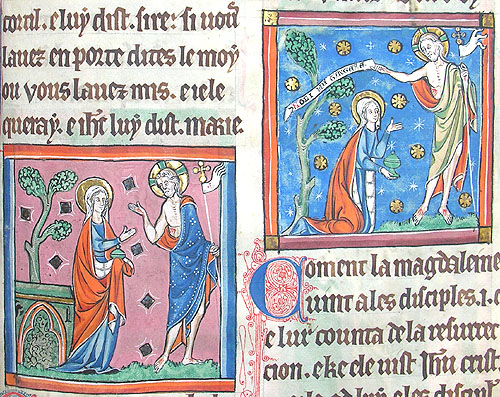 coral. e luy dist. sire: si
lauez en porte dites le moy
ou vous lauez mis. e ie le
queray. e luy dist. marie.
NOLI
Coment la magdaleine
uint a les disciples.
e lur counta de la resurrec
cion. e ke ele uist crist